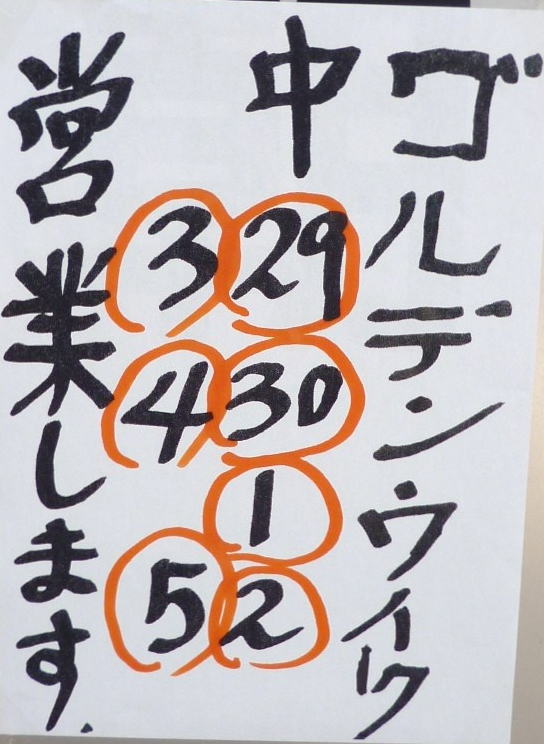 ゴルデンウイク
中
29
30
1
2
3
4
5
営業します.